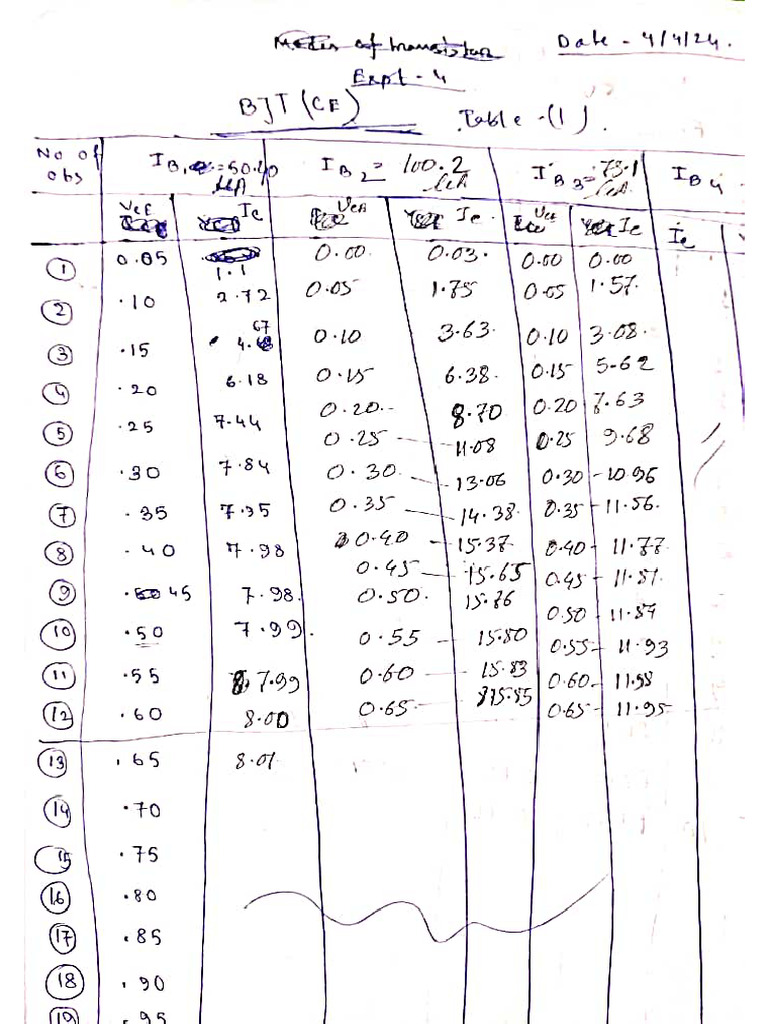 Modes of transistor
Date - 4/4/24.
Expt - 4
BJT (CE)
Table -(1).
No of obs IB1 = 50.40 μA IB2 = 100.2 μA IB3 = 75.1 μA IB4
VCE Ic VCE Ic VCE Ic Ic
1 0.05 1.1 0.00 0.03. 0.00 0.00
2 .10 2.72 0.05 1.75 0.05 1.57
3 .15 4.67 0.10 3.63. 0.10 3.08.
4 .20 6.18 0.15 6.38. 0.15 5.62
5 .25 7.44 0.20 8.70 0.20 7.63
0.25 11.08 0.25 9.68
6 .30 7.84 0.30 13.06 0.30 10.96
7 .35 7.95 0.35 14.38 0.35 11.56.
8 .40 7.98 0.40 15.37 0.40 11.77
0.45 15.65 0.45 11.81
9 .45 7.98. 0.50. 15.76 0.50 11.87
10 .50 7.99. 0.55 15.80 0.55 11.93
11 .55 7.99 0.60 15.83 0.60 11.98
12 .60 8.00 0.65 15.85 0.65 11.95
13 .65 8.01
14 .70
15 .75
16 .80
17 .85
18 .90
19 .95